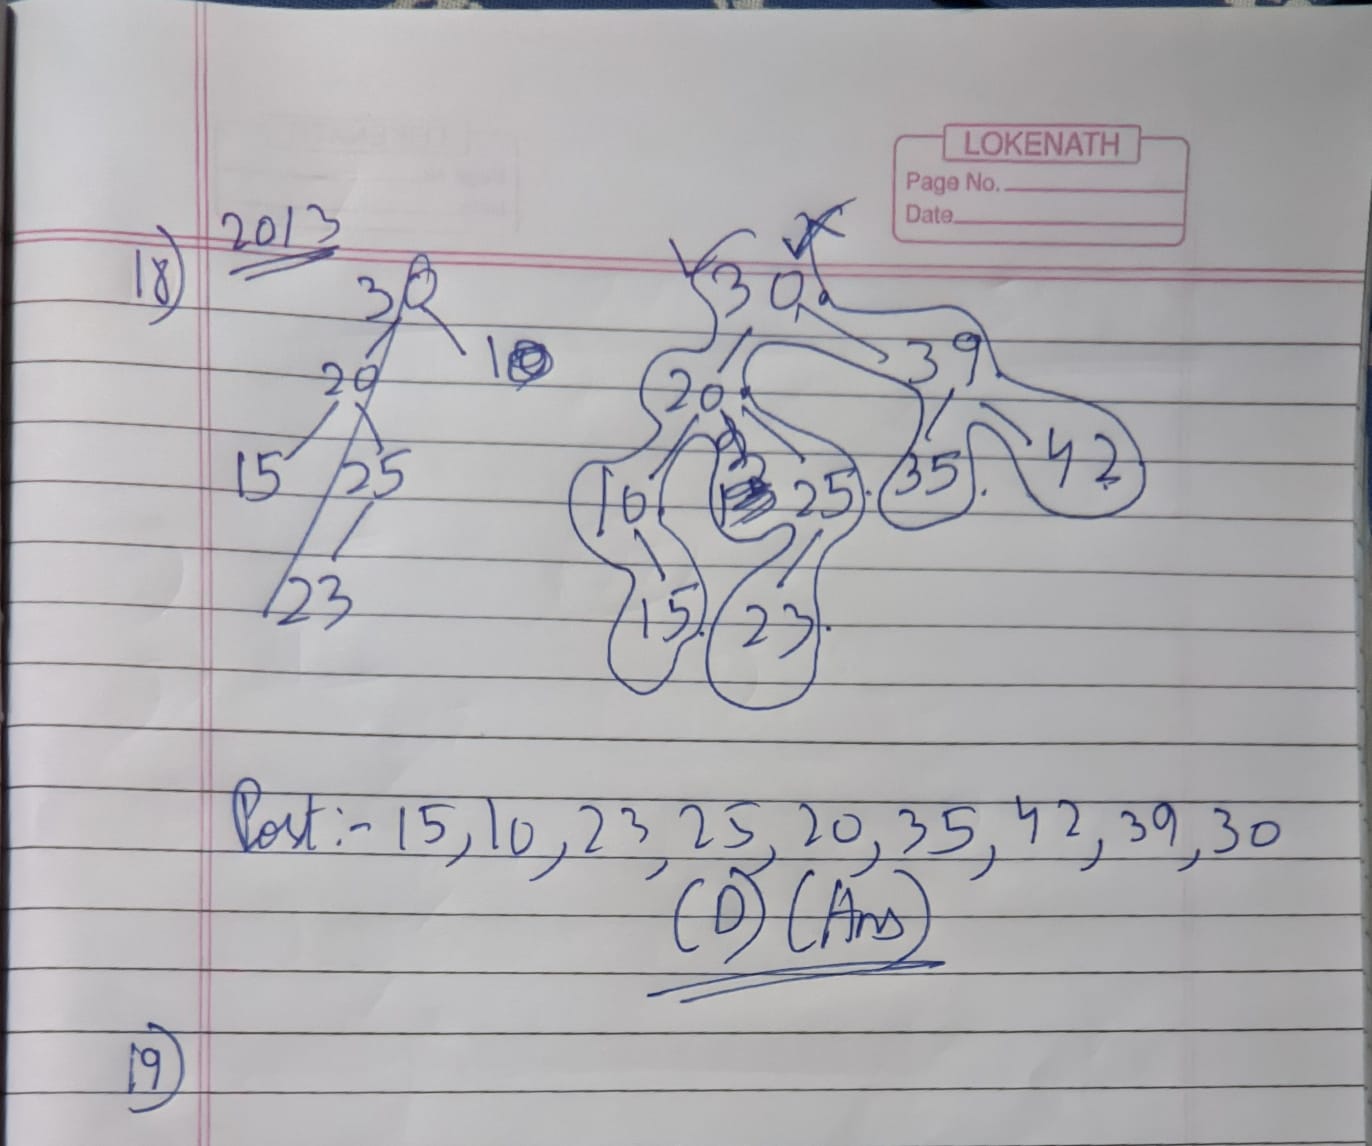 LOKENATH
Page No.
Date
2013
18)
30
20 1
15 25
23
30
20 39
10 25 35 42
15 23
Post:- 15, 10, 23, 25, 20, 35, 42, 39, 30
(D) (Ans)
19)